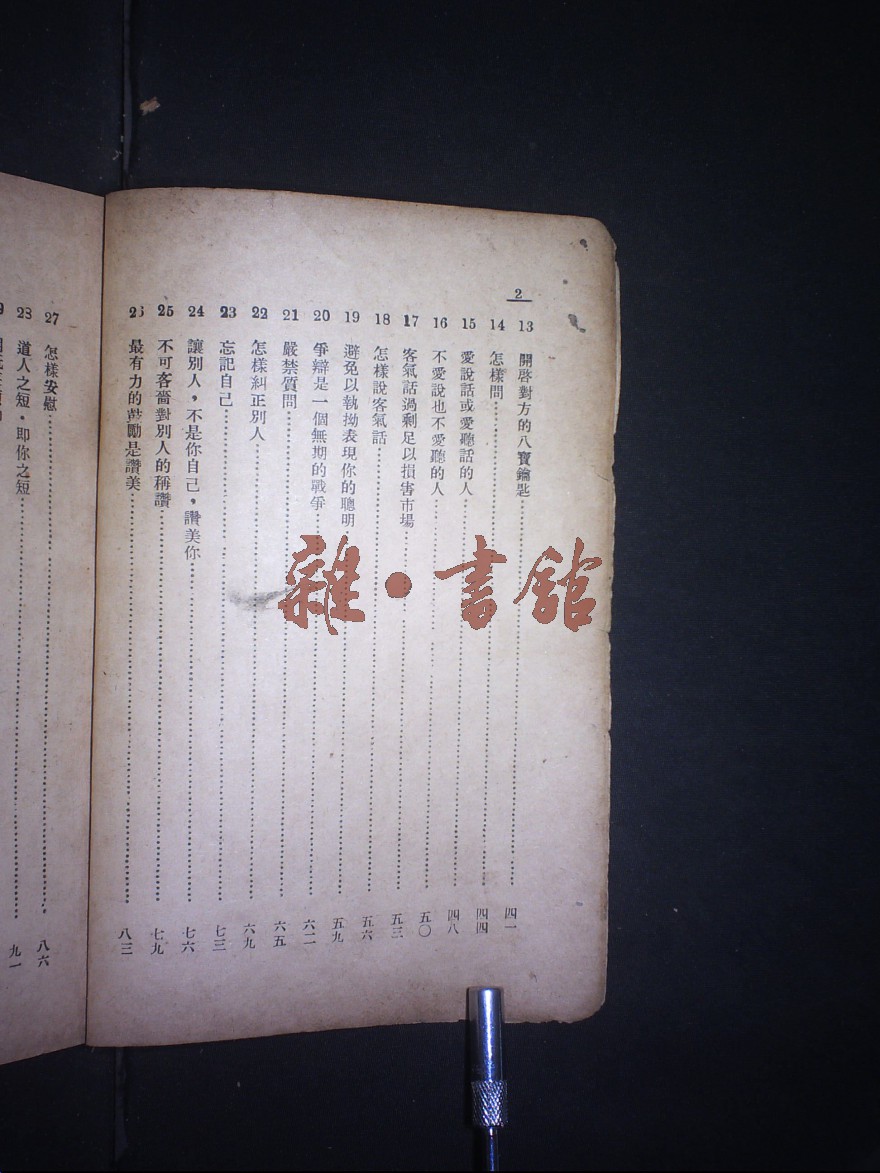 2
13 開啓對方的八寶鑰匙 四一
14 怎樣問 四四
15 愛說話或愛聽話的人 四八
16 不愛說也不愛聽的人 五〇
17 客氣話過剩足以損害市場 五三
18 怎樣說客氣話 五六
19 避免以執拗表現你的聰明 五九
20 爭辯是一個無期的戰爭 六二
21 嚴禁質問 六五
22 怎樣糾正別人 六九
23 忘記自己 七三
24 讓別人，不是你自己，讚美你 七六
25 不可吝嗇對別人的稱讚 七九
26 最有力的鼓勵是讚美 八三
27 怎樣安慰 八六
28 道人之短，即你之短 九一
雜·書館